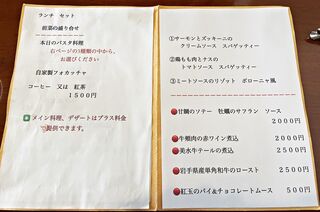 ランチ セット
前菜の盛り合せ
本日のパスタ料理
右ページの3種類の中から、
お選びください
自家製フォカッチャ
コーヒー 又は 紅茶
1500円
メイン料理、デザートはプラス料金
で提供できます。
①サーモンとズッキーニの
クリームソース スパゲッティー
②鶏もも肉とナスの
トマトソース スパゲッティー
③ミートソースのリゾット ボローニャ風
甘鯛のソテー 牡蠣のサフラン ソース
2000円
牛頬肉の赤ワイン煮込 2000円
美水牛テールの煮込 2500円
岩手県産単角和牛のロースト 2500円
紅玉のパイ&チョコレートムース 500円